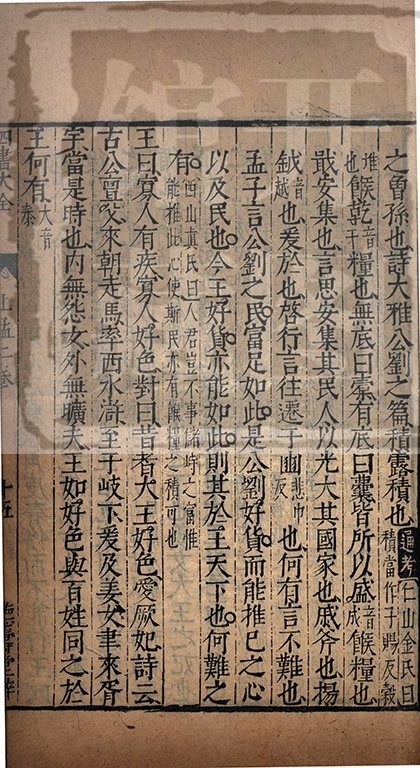 之曾孫也詩大雅公劉之篇積露積也通考仁山金氏曰積當作子賜反露
堆也餱乾音干糧也無底曰橐有底曰囊皆所以盛音成餱糧也
戢安集也言思安集其民人以光大其國家也戚斧也揚
鉞音越也爰於也啓行言往遷于豳悲巾反也何有言不難也
孟子言公劉之民富足如此是公劉好貨而能推己之心
以及民也今王好貨亦能如此則其於王天下也何難之
有西山真氏曰人君豈不事儲峙之富惟能推此心使斯民亦有餱糧之積可也
王曰寡人有疾寡人好色對曰昔者大王好色愛厥妃詩云
古公亶父來朝走馬率西水滸至于岐下爰及姜女聿來胥
宇當是時也內無怨女外無曠夫王如好色與百姓同之於
王何有大音泰
四書大全 上孟二卷 十五